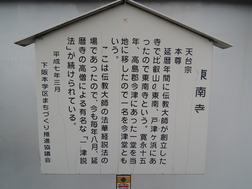 東南寺
天台宗
本尊
延暦年間に伝教大師が創立した
寺で比叡の東南、津が浜にあ
ったので東南寺という。寛永十五
年、高島郡今津にあった一堂を当
地に移したので一名を今津堂とも
いう。
ここは伝教大師の法華経説法の
場であったので、今も毎年八月、延
暦寺の高僧による有名な「一津説
法」が続けられている。
平成七年三月
下阪本学区まちづくり推進協議会